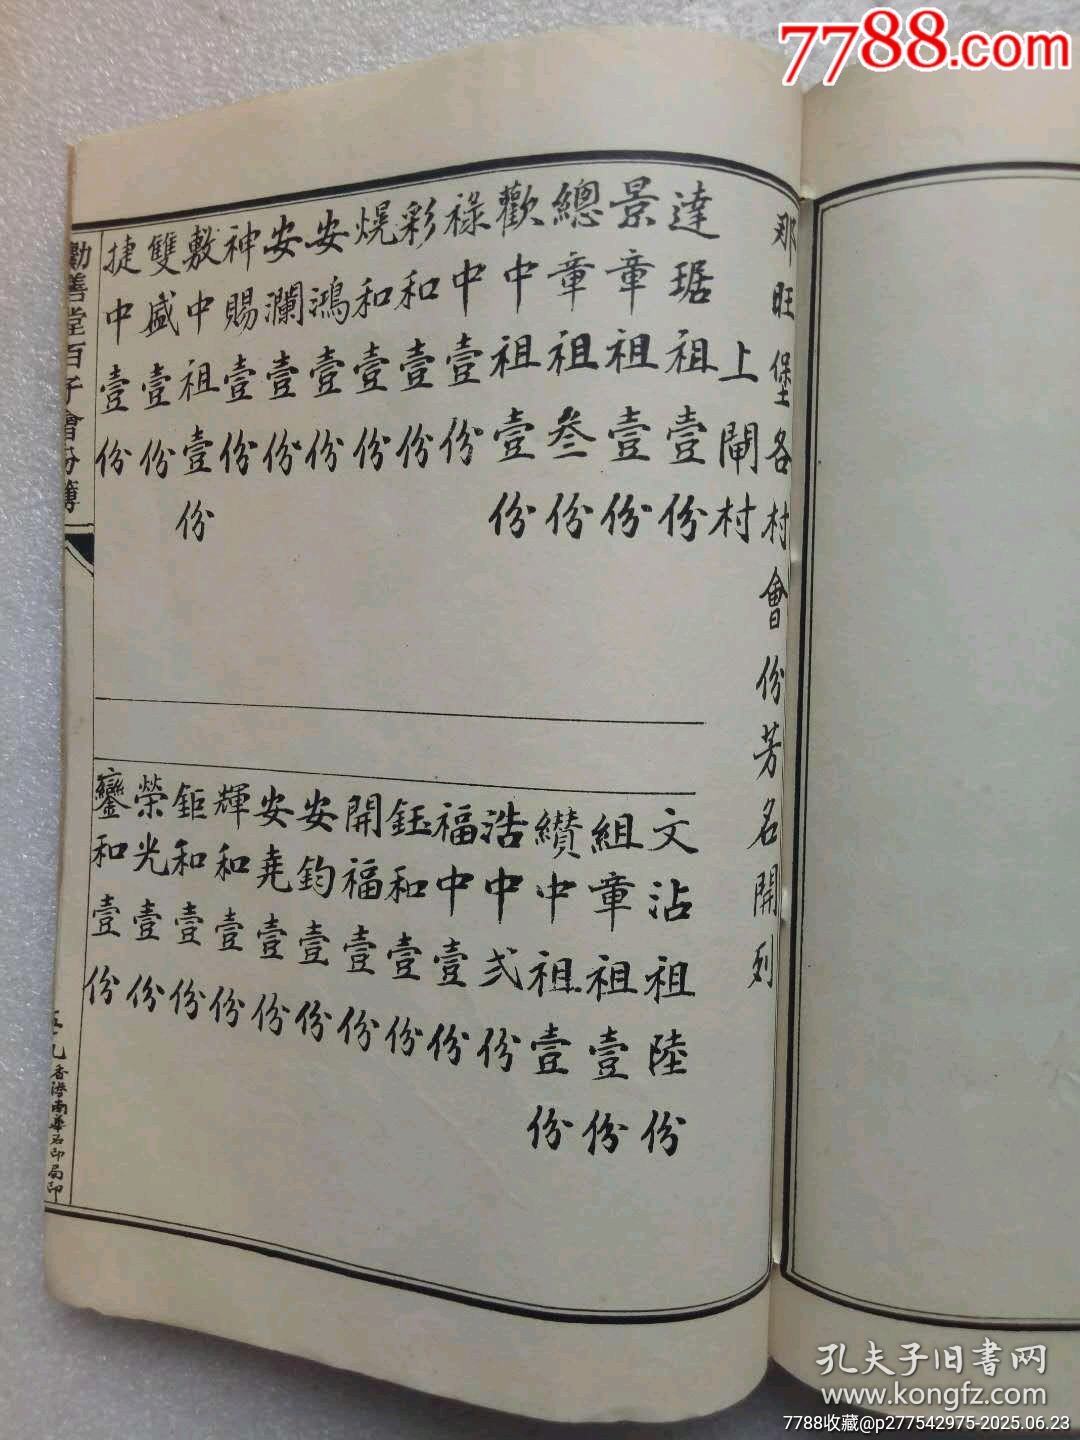 7788.com
那旺堡各村會份芳名開列
上閘村
達琚祖壹份
景章祖壹份
總章祖叁份
歡中祖壹份
祿中壹份
彩和壹份
焜和壹份
安鴻壹份
安瀾壹份
神賜壹份
敷中祖壹份
雙盛壹份
捷中壹份
文沾祖陸份
組章祖壹份
纘中祖壹份
浩中弍份
福中壹份
鈺和壹份
開福壹份
安鈞壹份
安堯壹份
輝和壹份
鉅和壹份
榮光壹份
鑾和壹份
勸善堂百子會份簿
香港南華石印局印
孔夫子旧書网
www.kongfz.com
7788收藏@p277542975-2025.06.23